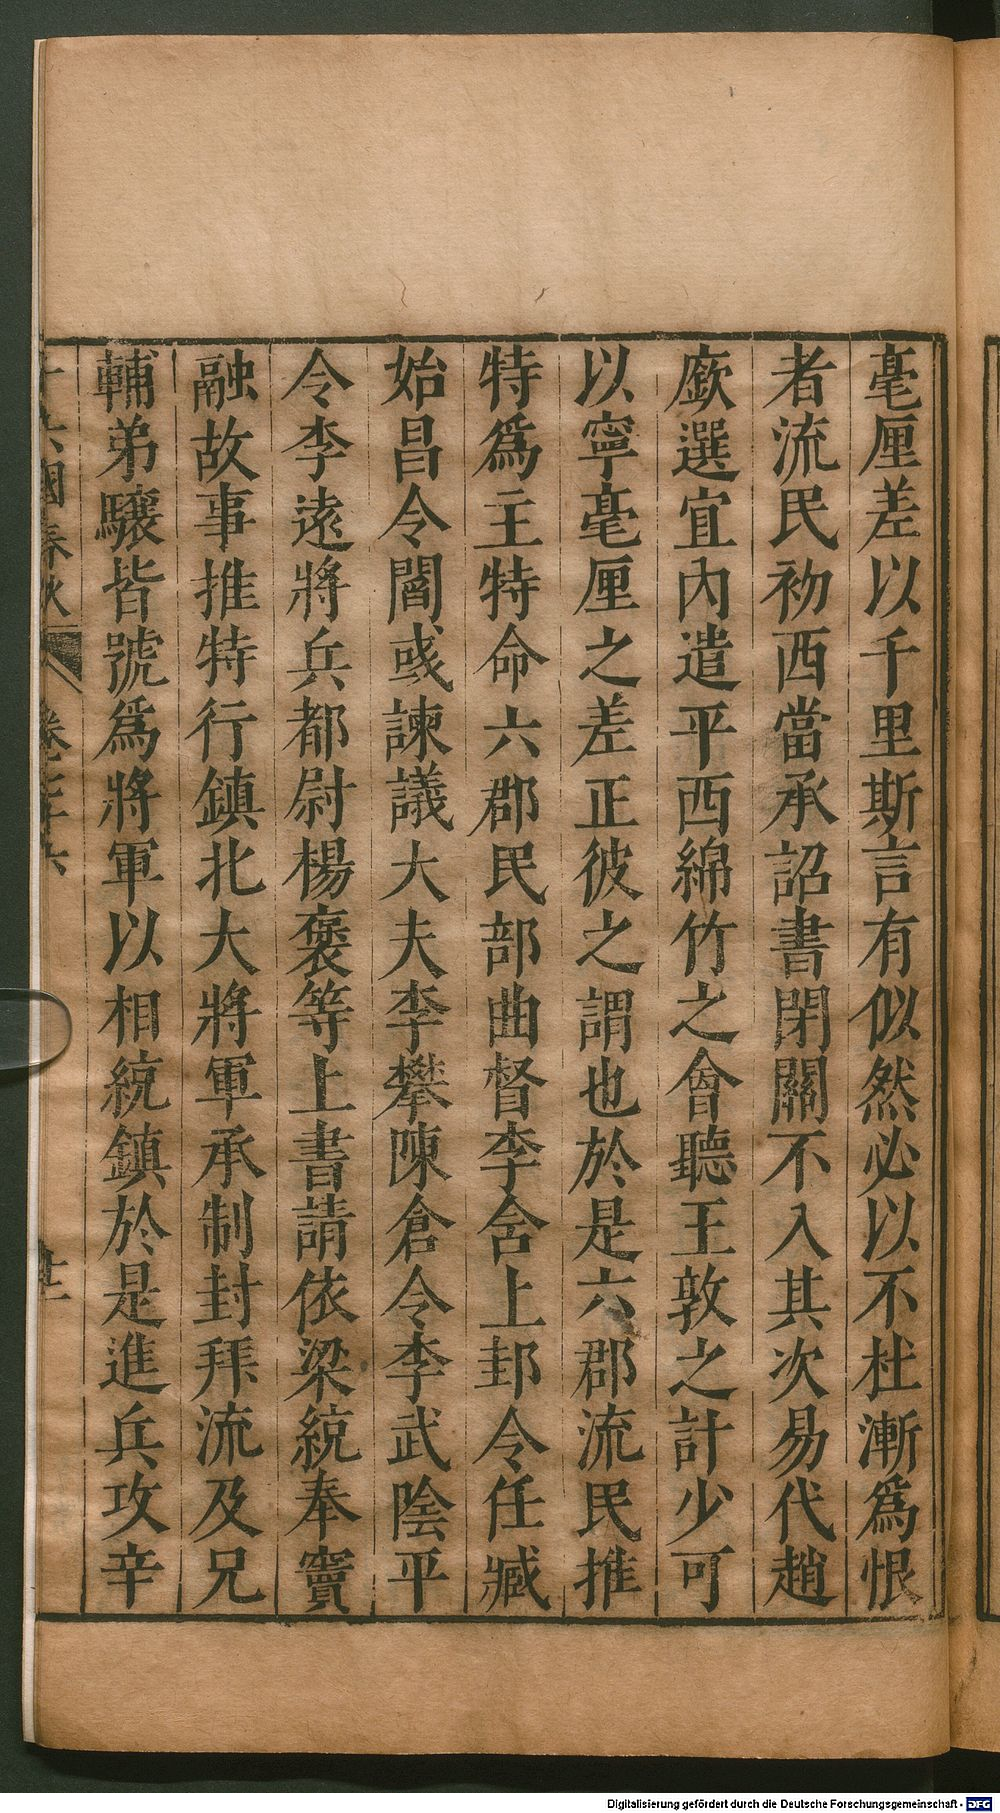 毫厘差以千里斯言有似然必以不杜漸爲恨
者流民初西當承詔書閉關不入其次易代趙
廞選宜內遣平西綿竹之會聽王敦之計少可
以寧毫厘之差正彼之謂也於是六郡流民推
特爲主特命六郡民部曲督李含上邽令任臧
始昌令閻彧諫議大夫李攀陳倉令李武陰平
令李遠將兵都尉楊褒等上書請依梁統奉竇
融故事推特行鎮北大將軍承制封拜流及兄
輔弟驤皆號爲將軍以相統鎮於是進兵攻辛
十六國春秋 卷七十六 十二
Digitalisierung gefördert durch die Deutsche Forschungsgemeinschaft - DFG